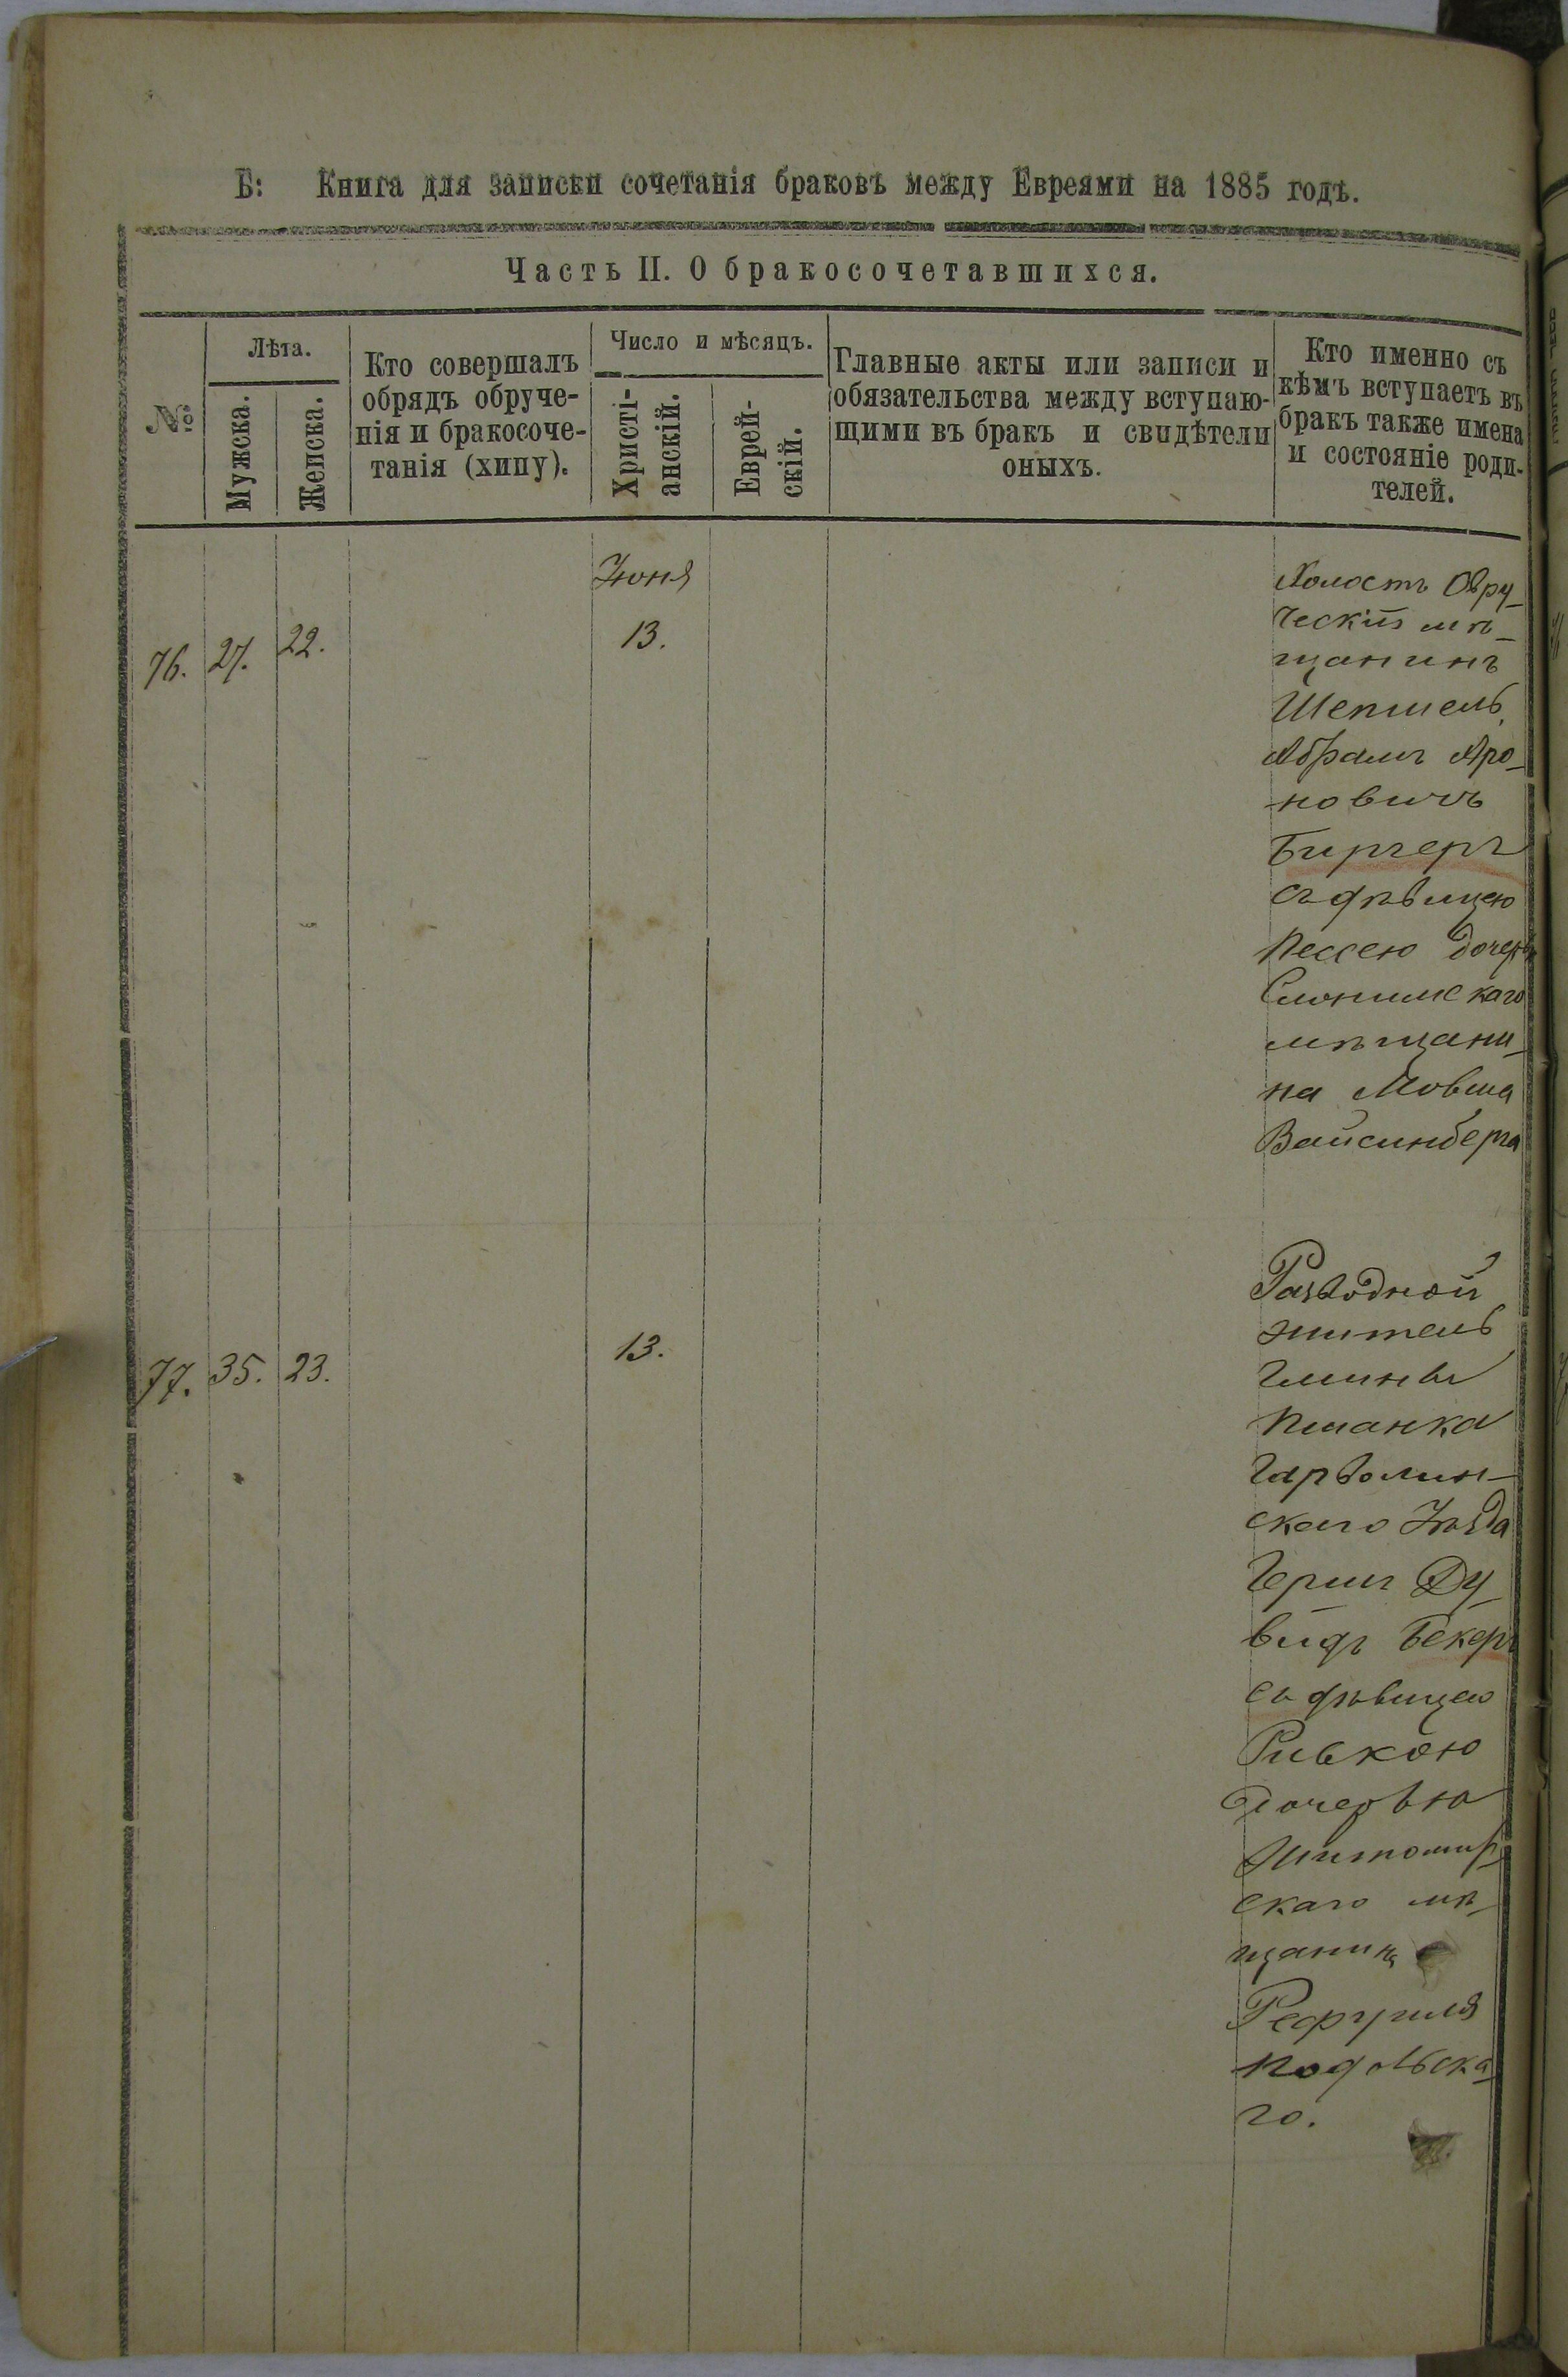 Б: Книга для записки сочетанія браковъ между Евреями на 1885 годъ.
Часть II. О бракосочетавшихся.
№
Лѣта.
Мужска.
Женска.
Кто совершалъ
обрядъ обруче-
нія и бракосоче-
танія (хипу).
Число и мѣсяцъ.
Христі-
анскій.
Еврей-
скій.
Главные акты или записи и
обязательства между вступаю-
щими въ бракъ и свидѣтели
оныхъ.
Кто именно съ
кѣмъ вступаетъ въ
бракъ также имена
и состояніе роди-
телей.
76. 27. 22.
Іюня
13.
Холостъ Овру-
ческій мѣ-
щанинъ
Шепшель
Абрамъ Аро-
новичъ
Биргеръ
съ дѣвицею
Пессею дочерью
Слонимскаго
мѣщани-
на Мовша
Вайсинберга
77. 35. 23.
13.
Разводной
житель
гмины
Пшанка
Гарволин-
скаго Уѣзда
Герш Ду-
видъ Бекеръ
съ дѣвицею
Ривкою
дочерью
Житомир-
скаго мѣ-
щанина
Рефуиля
Подольска-
го.